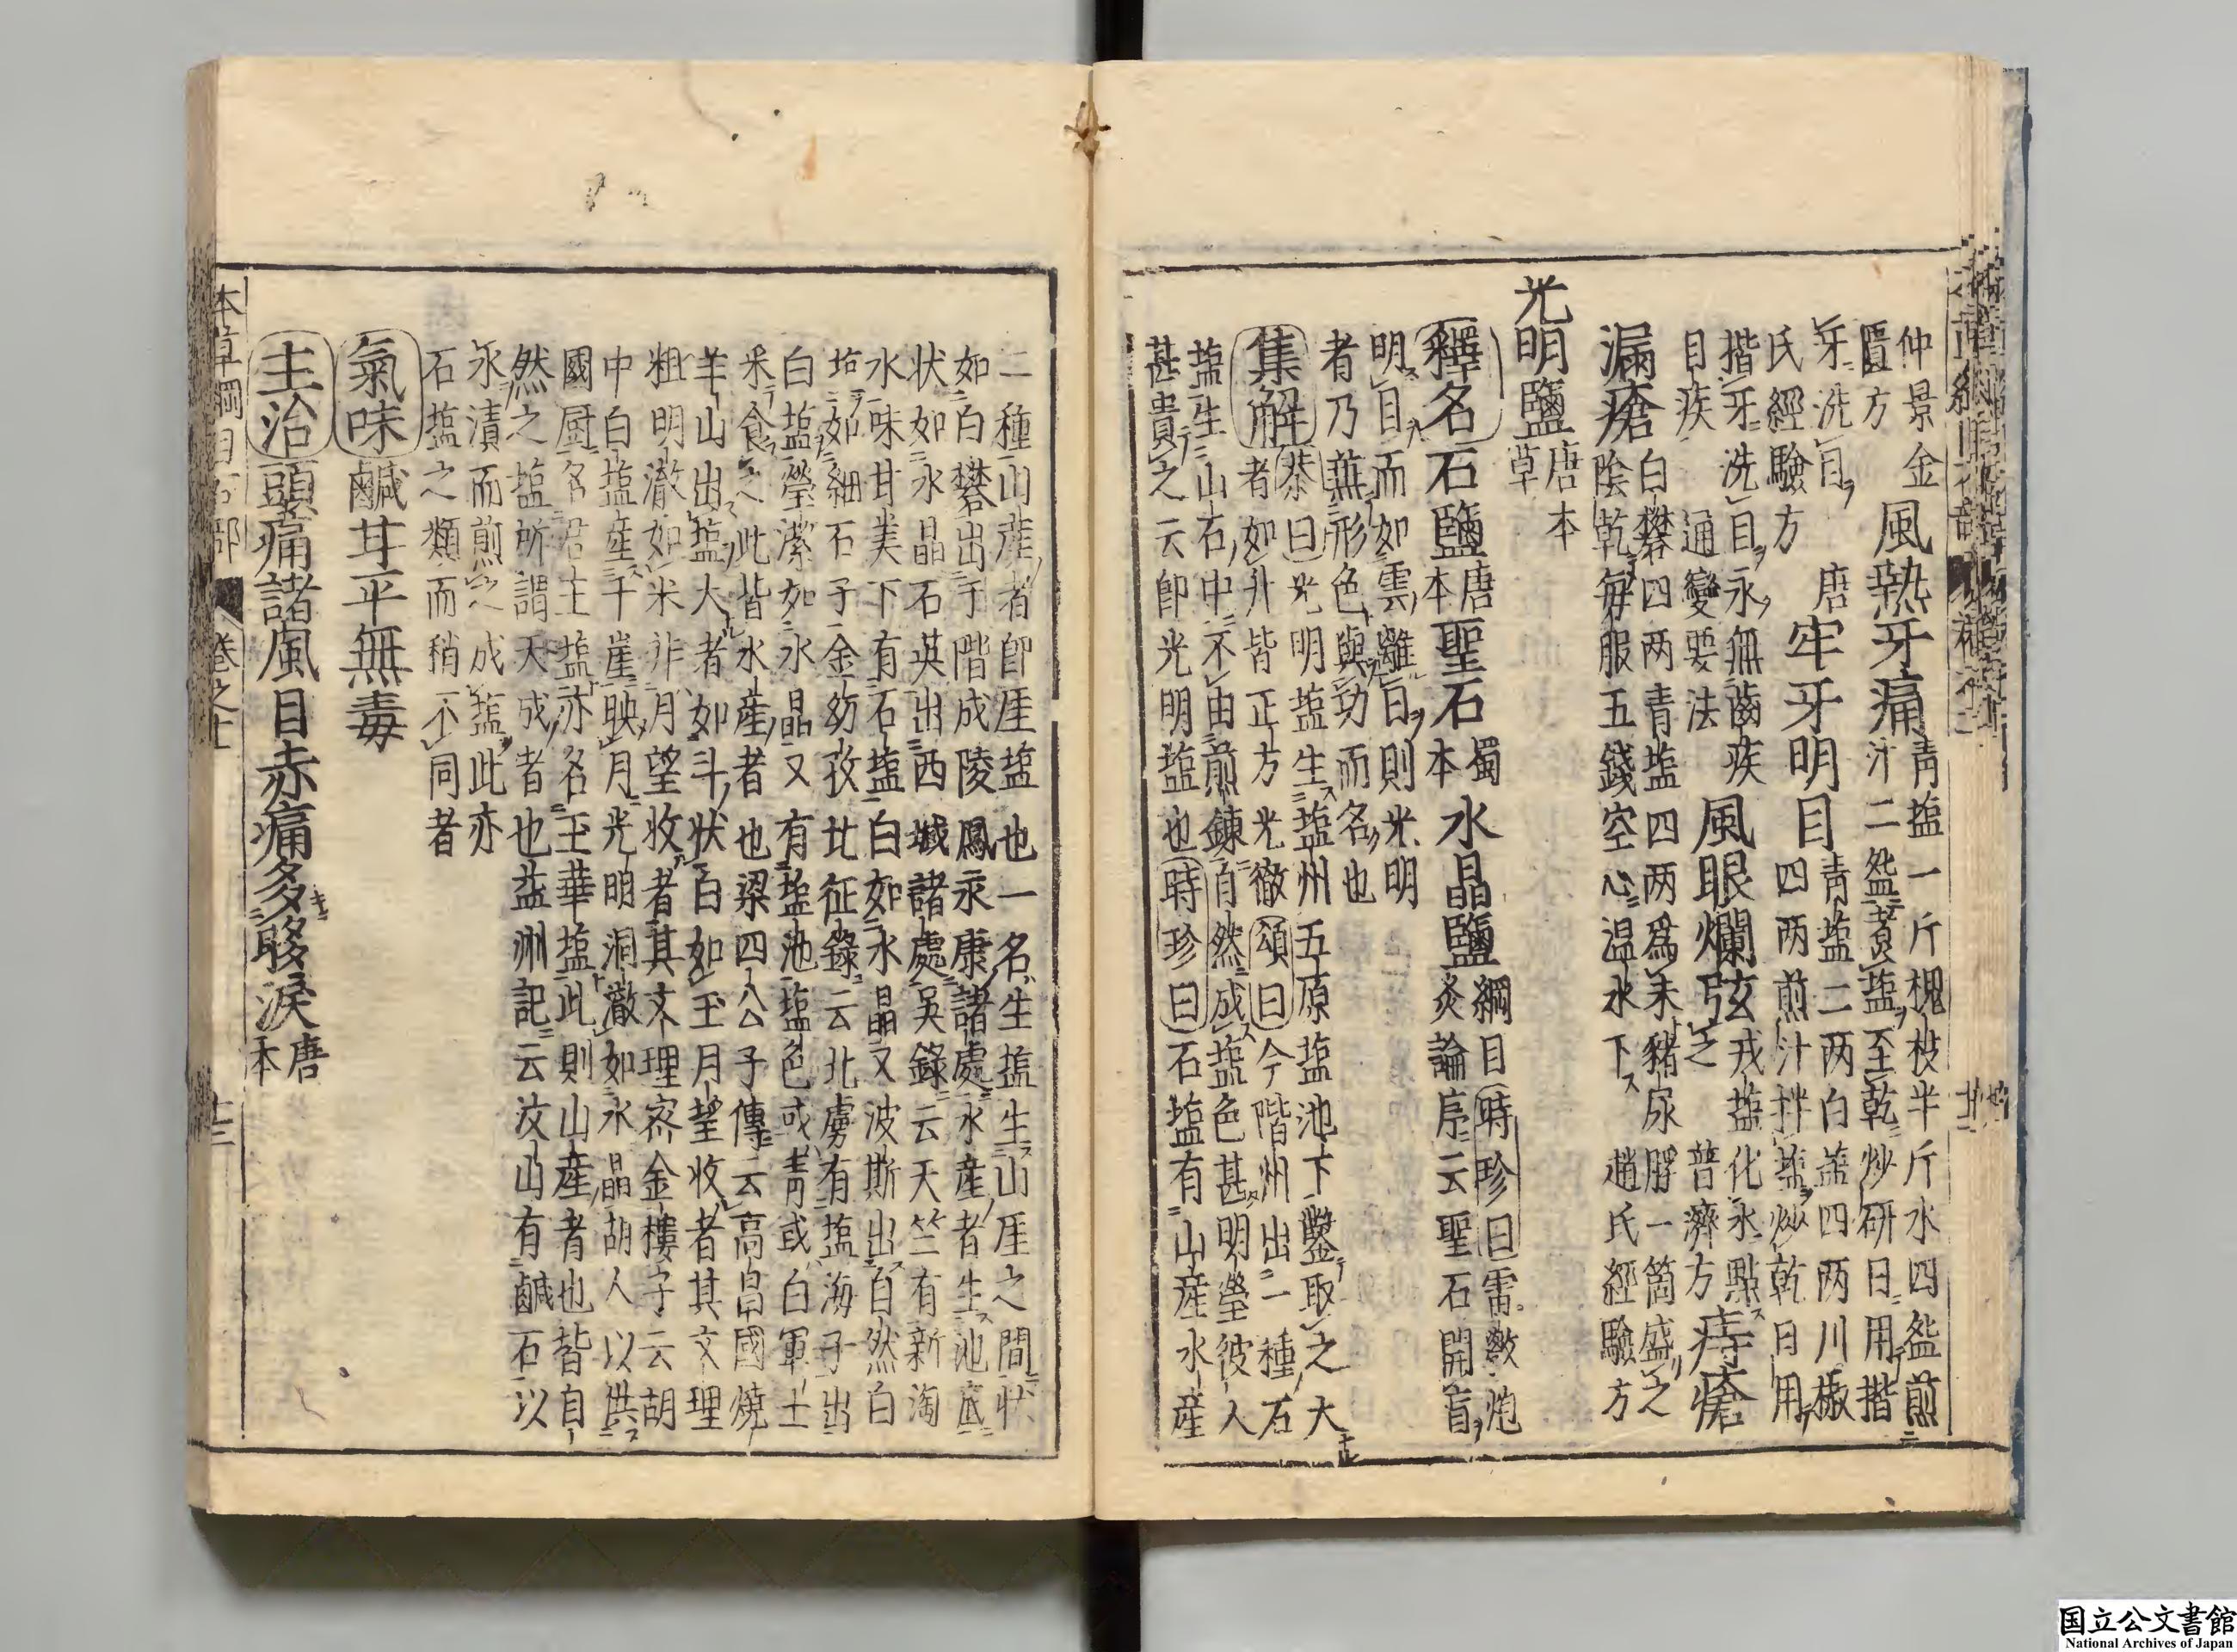 仲景金
匱方 風熱牙痛 青塩一斤槐枝半斤水四盌煎
汁二盌煑塩至乾炒研日用揩
牙洗目 唐
氏經驗方 牢牙明目 青塩二两白盐四两川椒
四两煎汁拌塩炒乾日用
揩牙洗目永無齒疾 通變要法
目疾 風眼爛弦 戎塩化水點
之 普濟方 痔瘡
漏瘡 白礬四两青塩四两爲末豬尿脬一箇盛之
陰乾每服五錢空心温水下 趙氏經驗方
光明鹽 唐本
草
釋名 石鹽 唐本 聖石 蜀本 水晶鹽 綱目 時珍曰雷斆炮
炙論序云聖石開盲
明目而如雲離日則光明
者乃兼形色與功而名也
集解 恭曰光明塩生塩州五原塩池下鑿取之大
者如升皆正方光徹頌曰今階州出一種石
塩生山石中不由煎鍊自然成塩色甚明瑩彼人
甚貴之云即光明塩也時珍曰石塩有山産水産
二種山産者即厓塩也一名生塩生山厓之間状
如白礬出于階成陵鳳永康諸處水産者生池底
状如水晶石英出西域諸處吳錄云天竺有新淘
水味甘美下有石塩白如水晶又波斯出自然白
塩如細石子金幼孜北征錄云北虜有塩海子出
白塩瑩潔如水晶又有塩池塩色或青或白軍士
采食之此皆水産者也梁四公子傳云高昌國燒
羊山出塩大者如斗状白如玉月望收者其文理
粗明澈如氷非月望收者其文理宻金樓子云胡
中白塩産于崖映月光明洞澈如水晶胡人以供
國厨名君王塩亦名玉華塩此則山産者也皆自
然之塩所謂天成者也益州記云汶山有鹹石以
水漬而煎之成塩此亦
石塩之類而稍不同者
氣味 鹹甘平無毒
主治 頭痛諸風目赤痛多眵淚 唐本
本草綱目石部 卷之十一 十三
国立公文書館
National Archives of Japan